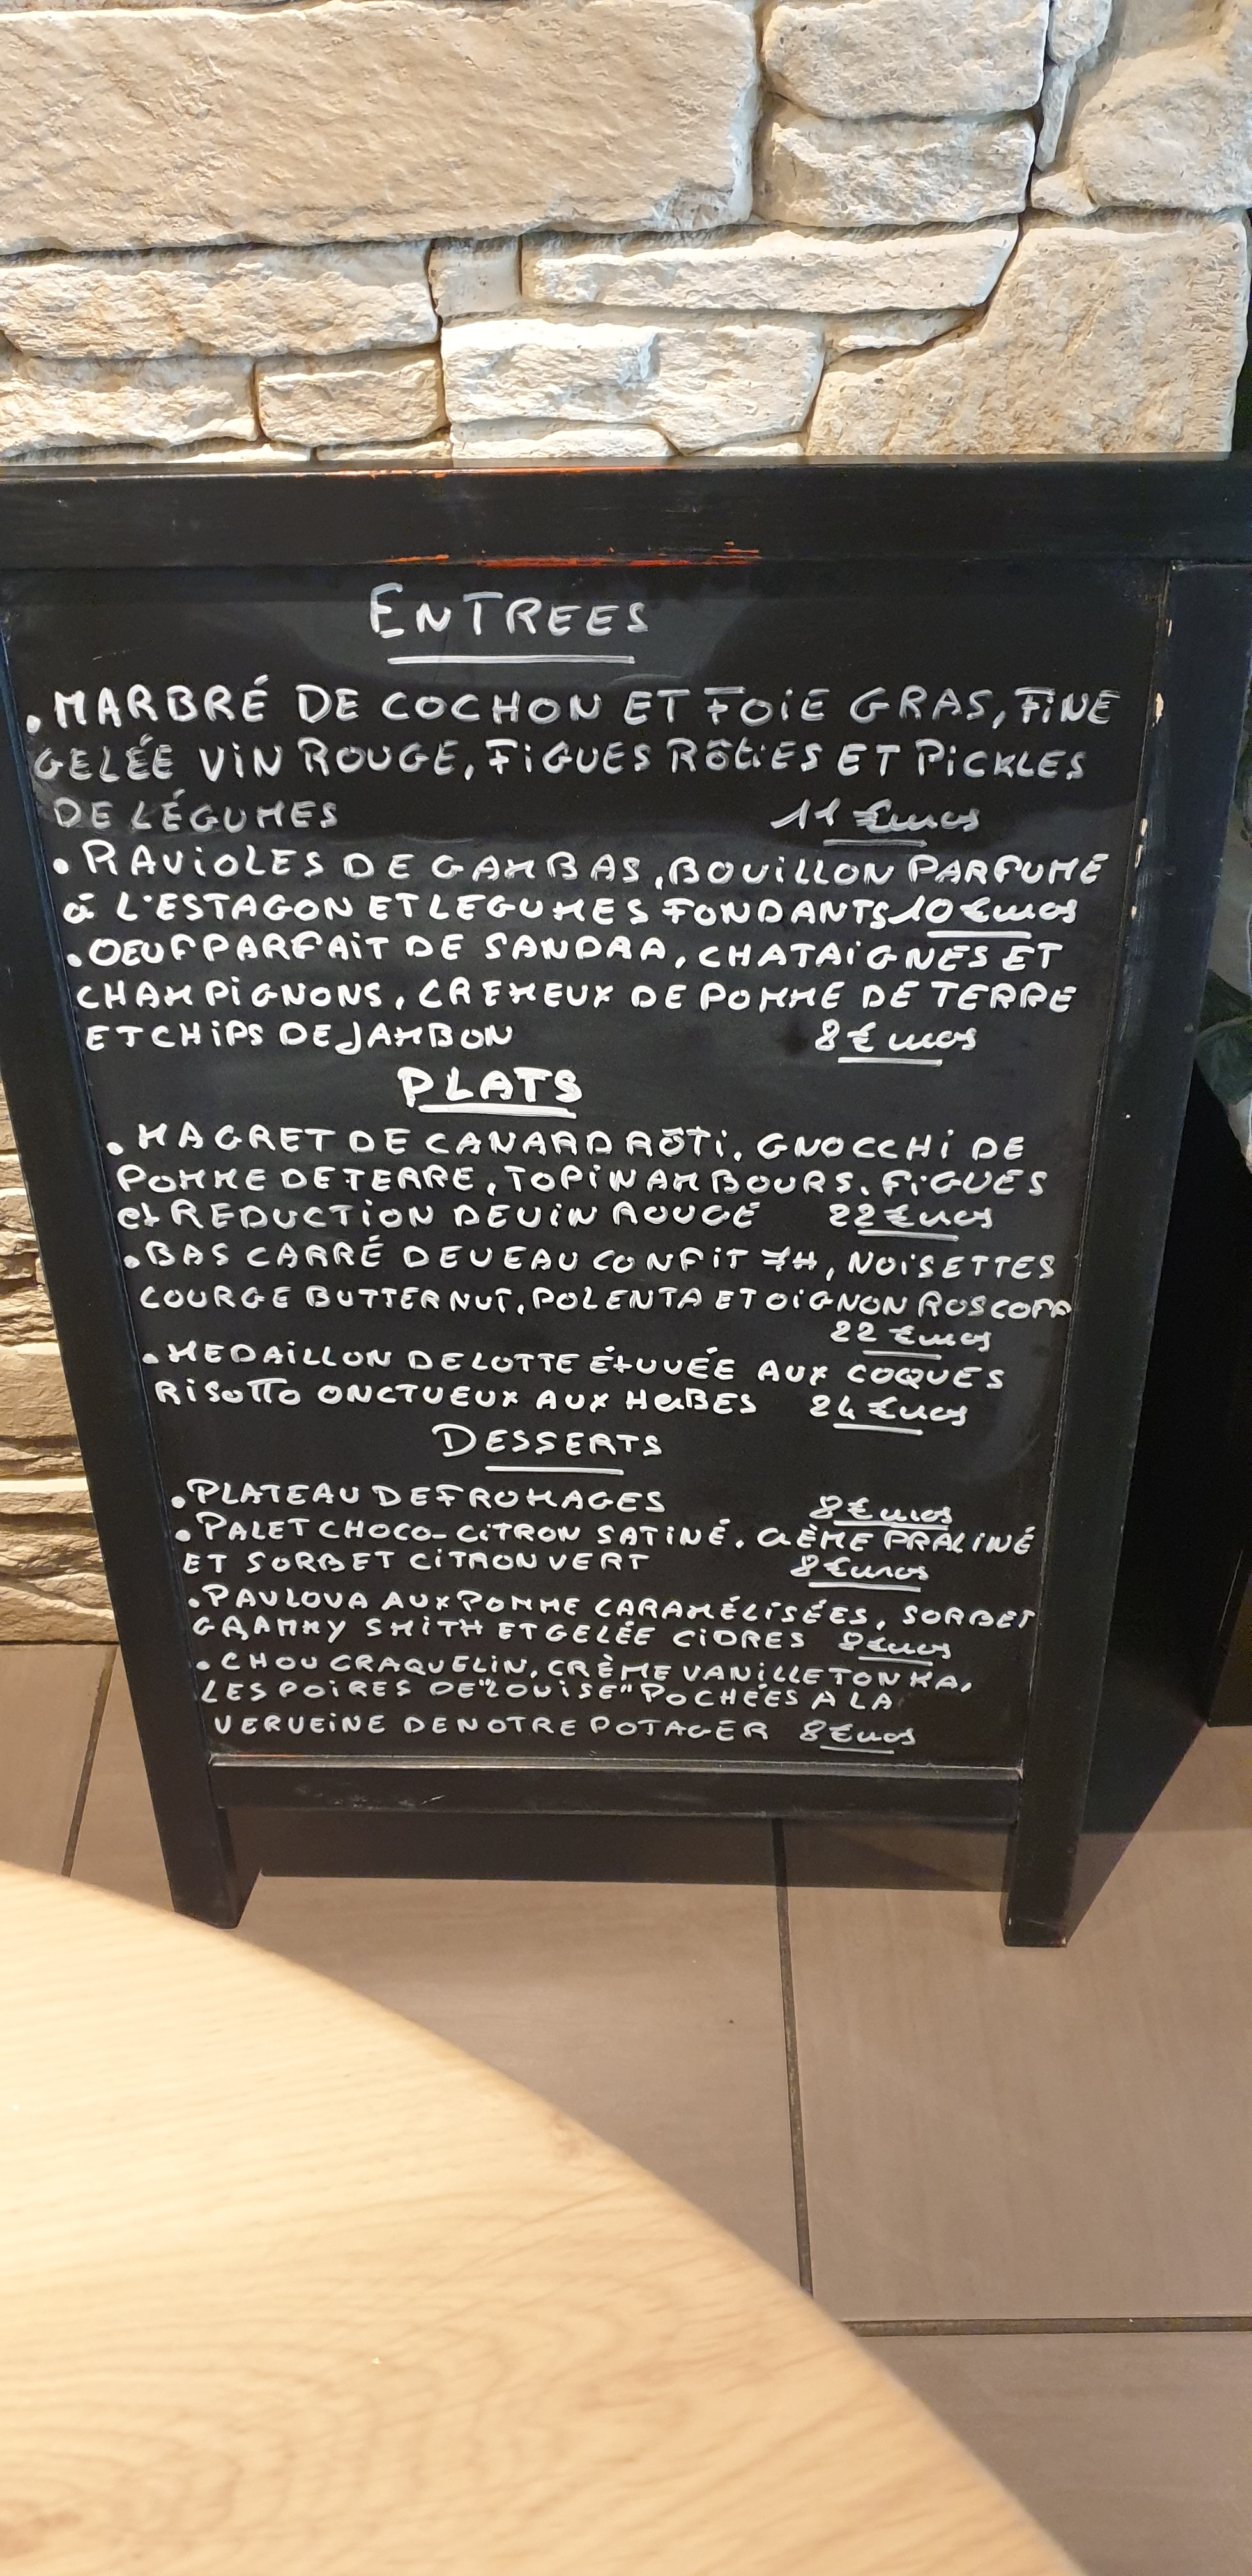 ENTREES
. MARBRÉ DE COCHON ET FOIE GRAS, FINE
GELÉE VIN ROUGE, FIGUES RÔTIES ET PICKLES
DE LÉGUMES 11 €uros
. RAVIOLES DE GAMBAS, BOUILLON PARFUMÉ
à L'ESTAGON ET LEGUMES FONDANTS 10 €uros
. OEUF PARFAIT DE SANDRA, CHATAIGNES ET
CHAMPIGNONS, CREMEUX DE POMME DE TERRE
ET CHIPS DE JAMBON 8 €uros
PLATS
. MAGRET DE CANARD RÔTI, GNOCCHI DE
POMME DE TERRE, TOPINAMBOURS, FIGUES
et REDUCTION DE VIN ROUGE 22 €uros
. BAS CARRÉ DE VEAU CONFIT 7H, NOISETTES
COURGE BUTTERNUT, POLENTA ET OIGNON ROSCOFF
22 €uros
. MEDAILLON DE LOTTE ÉTUVÉE AUX COQUES
RISOTTO ONCTUEUX AUX HERBES 24 €uros
DESSERTS
. PLATEAU DE FROMAGES 8 €uros
. PALET CHOCO-CITRON SATINÉ, CRÈME PRALINÉ
ET SORBET CITRON VERT 8 €uros
. PAVLOVA AUX POMME CARAMÉLISÉES, SORBET
GRANNY SMITH ET GELÉE CIDRES 8 €uros
. CHOU CRAQUELIN, CRÈME VANILLE TONKA,
LES POIRES DE "LOUISE" POCHÉES A LA
VERVEINE DE NOTRE POTAGER 8 €uros